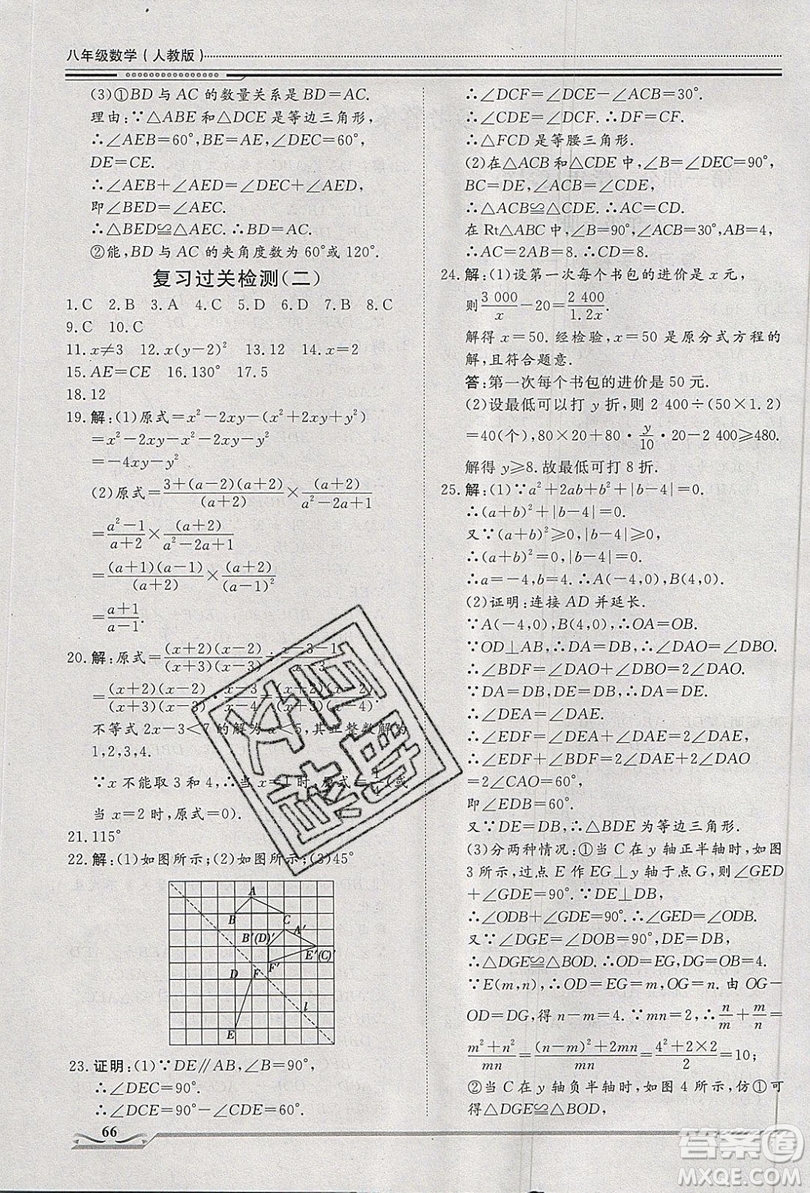 八年级数学(人教版)
(3)①BD与AC的数量关系是BD=AC.
理由:∵△ABE和△DCE是等边三角形,
∴∠AEB=60°,BE=AE,∠DEC=60°,
DE=CE.
∴∠AEB+∠AED=∠DEC+∠AED,
即∠BED=∠AEC.
∴△BED≌△AEC.∴BD=AC.
②能,BD与AC的夹角度数为60°或120°.
复习过关检测(二)
1.C 2.B 3.A 4.C 5.D 6.B 7.B 8.C
9.C 10.C
11.x≠3 12.x(y-2)² 13.12 14.x=2
15.AE=CE 16.130° 17.5
18.12
19.解:(1)原式=x²-2xy-(x²+2xy+y²)
=x²-2xy-x²-2xy-y²
=-4xy-y²
(2)原式=(3+(a-2)(a+2))/(a+2)×(a+2)/(a²-2a+1)
=(a²-1)/(a+2)×(a+2)/(a²-2a+1)
=((a+1)(a-1))/(a+2)×(a+2)/(a-1)²
=(a+1)/(a-1).
20.解:原式=((x+2)(x-2))/((x+2)(x-3))÷(x-3-1)/(x-3)
=((x+2)(x-2))/((x+2)(x-3))
不等式2x-3<7的解为x<5,其正整数解的
1,2,3,4.
∵x不能取3和4,∴当x=1时,原式=(或
当x=2时,原式=0).
21.115°
22.解:(1)如图所示;(2)如图所示;(3)45°
A
B
C
A′
B′(D)′
E′(C)
F′
D
F
E
l
23.证明:(1)∵DE∥AB,∠B=90°,
∴∠DEC=90°.
∴∠DCE=90°-∠CDE=60°.
∴∠DCF=∠DCE-∠ACB=30°.
∴∠CDE=∠DCF.∴DF=CF.
∴△FCD是等腰三角形.
(2)在△ACB和△CDE中,∠B=∠DEC=90°,
BC=DE,∠ACB=∠CDE,
∴△ACB≌△CDE.∴AC=CD.
在Rt△ABC中,∠B=90°,∠ACB=30°,AB=4,
∴AC=2AB=8.∴CD=8.
24.解:(1)设第一次每个书包的进价是x元,
则3 000/x-20=2 400/1.2x.
解得x=50.经检验,x=50是原分式方程的解,
且符合题意.
答:第一次每个书包的进价是50元.
(2)设最低可以打y折,则2 400÷(50×1.2)
=40(个),80×20+80·y/10·20-2 400≥480.
解得y≥8.故最低可打8折.
25.解:(1)∵a²+2ab+b²+|b-4|=0,
∴(a+b)²+|b-4|=0.
又∵(a+b)²≥0,|b-4|≥0,
∴(a+b)²=0,|b-4|=0.
∴a=-4,b=4.∴A(-4,0),B(4,0).
(2)证明:连接AD并延长.
∵A(-4,0),B(4,0),∴OA=OB.
∵OD⊥AB,∴∠DAO=∠DBO.
∵DA=DB,DE=DB,∴DE=DA.
∴∠DEA=∠DAE.
∴∠EDF+∠BDF=2∠DAE+2∠DAO
=2∠CAO=60°.
即∠EDB=60°.
又∵DE=DB,∴△BDE是等边三角形.
(3)分两种情况:①当C在y轴正半轴时,如图
3所示,过点E作EG⊥y轴于点G,则∠GED
+∠GDE=90°.∵∠EDB=90°,
∴∠ODB+∠GDE=90°.∴∠GED=∠ODB.
又∵∠DGE=∠DOB=90°,DE=DB,
∴△DGE≌△BOD.∴OD=EG,DG=OB=4.
∵E(m,n),∴OD=EG=m,OG=n.由OG-OD
=DG,得n-m=4.∵mn=2,∴m/n+n/m=
(m²+n²)/mn=((n-m)²+2mn)/mn=(4²+2×2)/2=10;
②当C在y轴负半轴时,如图4所示,仿①可
得△DGE≌△BOD.
66
答案圈
MXQE.COM